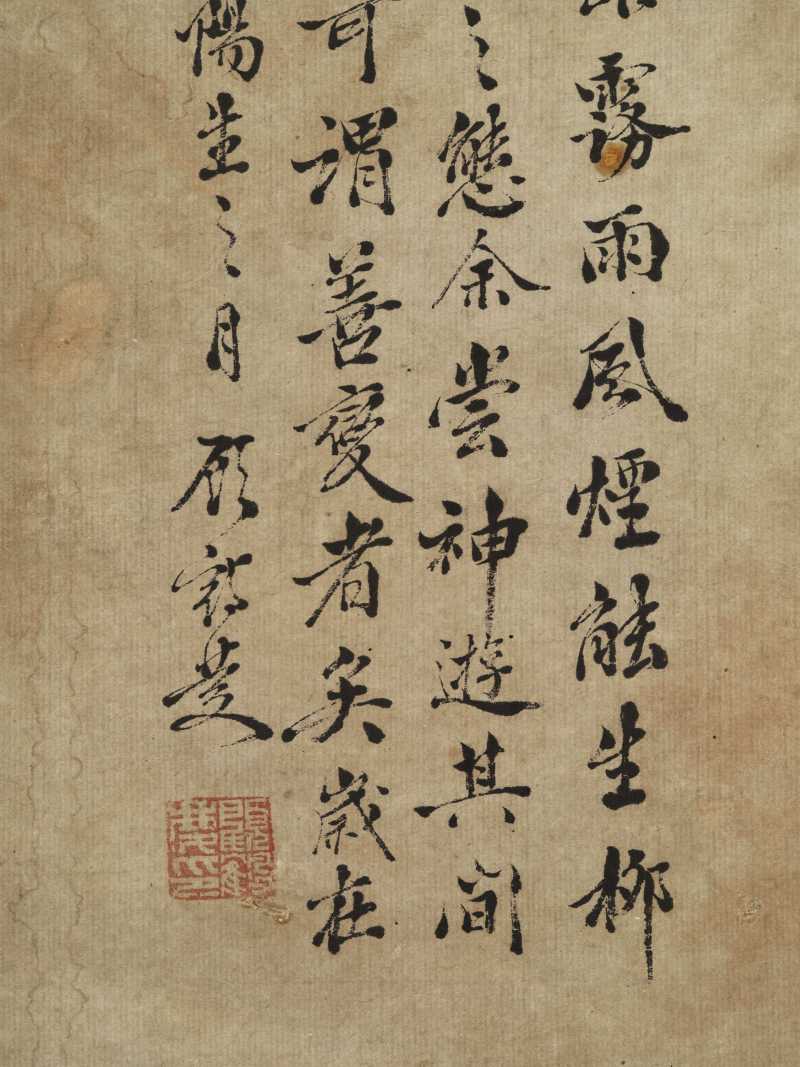 霧雨風煙能生柳
之態余嘗神遊其間
可謂善變者矣歲在
陽生之月 顧鶴慶